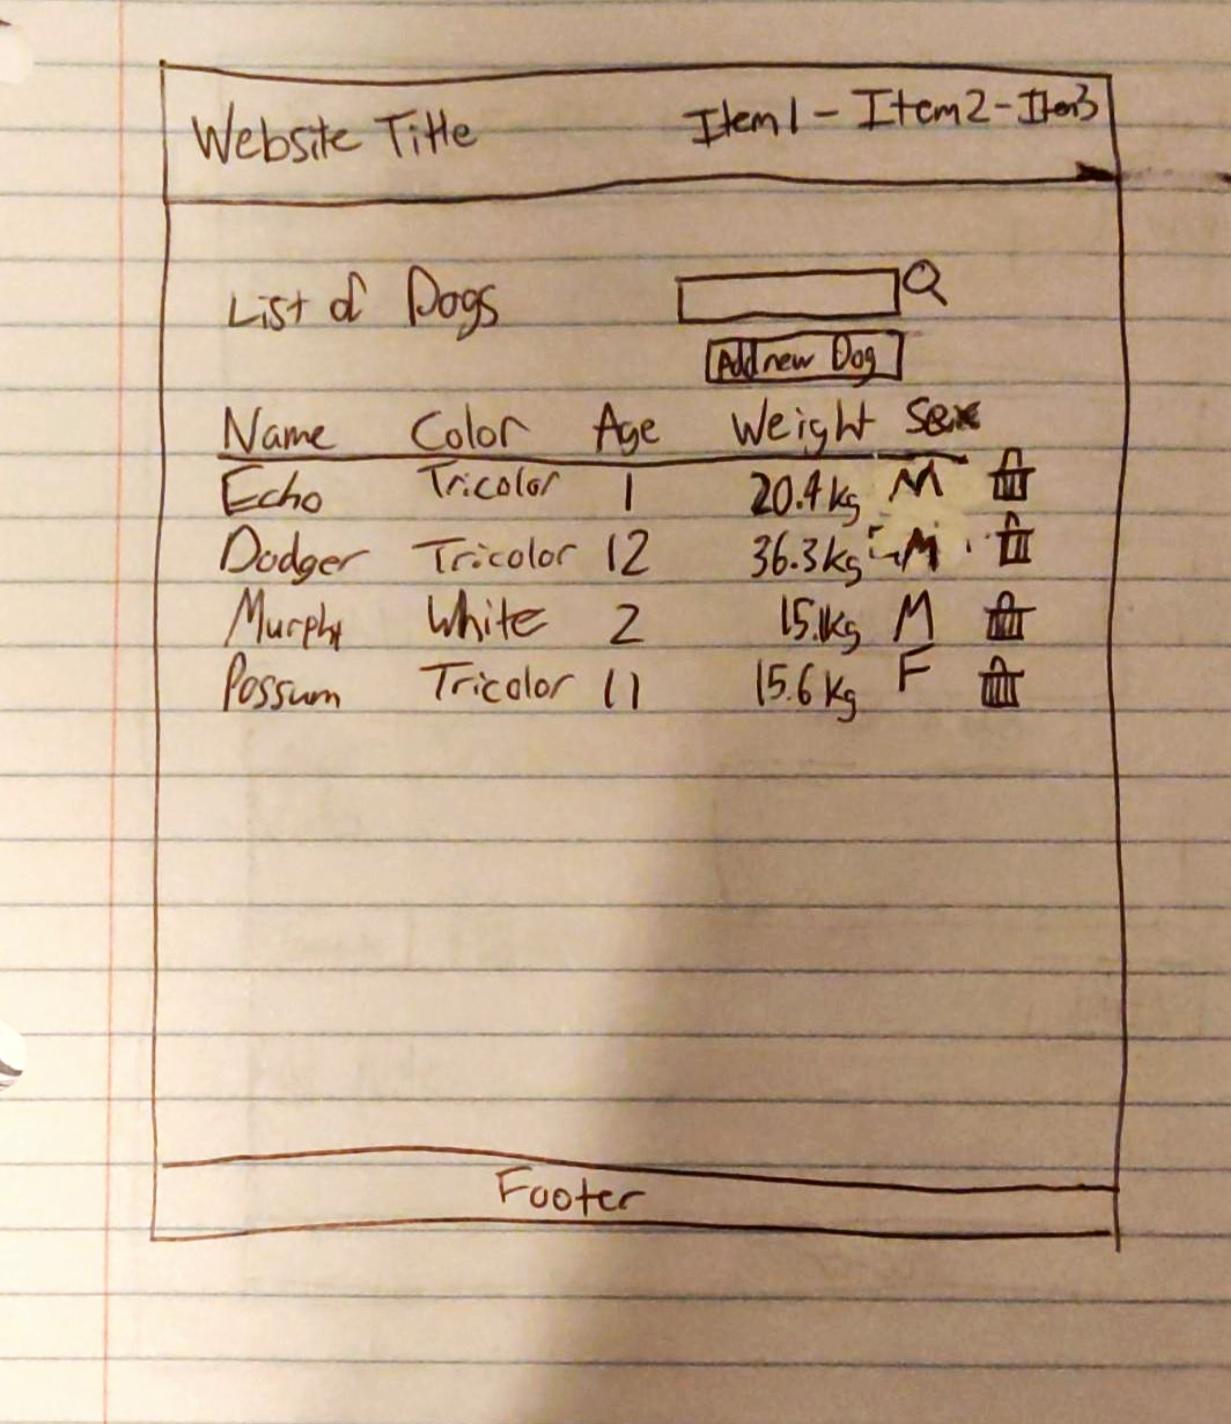 Website Title Item1 - Item2 - Item3
List of Dogs
Add new Dog
Name Color Age Weight Sex
Echo Tricolor 1 20.4kg M
Dodger Tricolor 12 36.3kg M
Murphy White 2 15.1kg M
Possum Tricolor 11 15.6kg F
Footer